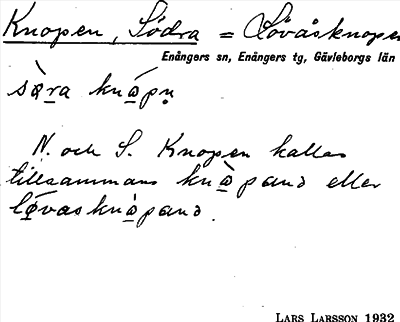 Knopen, Södra = Lövåsknopen
Enångers sn, Enångers tg, Gävleborgs län
sø̀ra knápn̥
N. och S. Knopen kallas
tillsammans knàpand eller
lø̀vasknàpand.
LARS LARSSON 1932